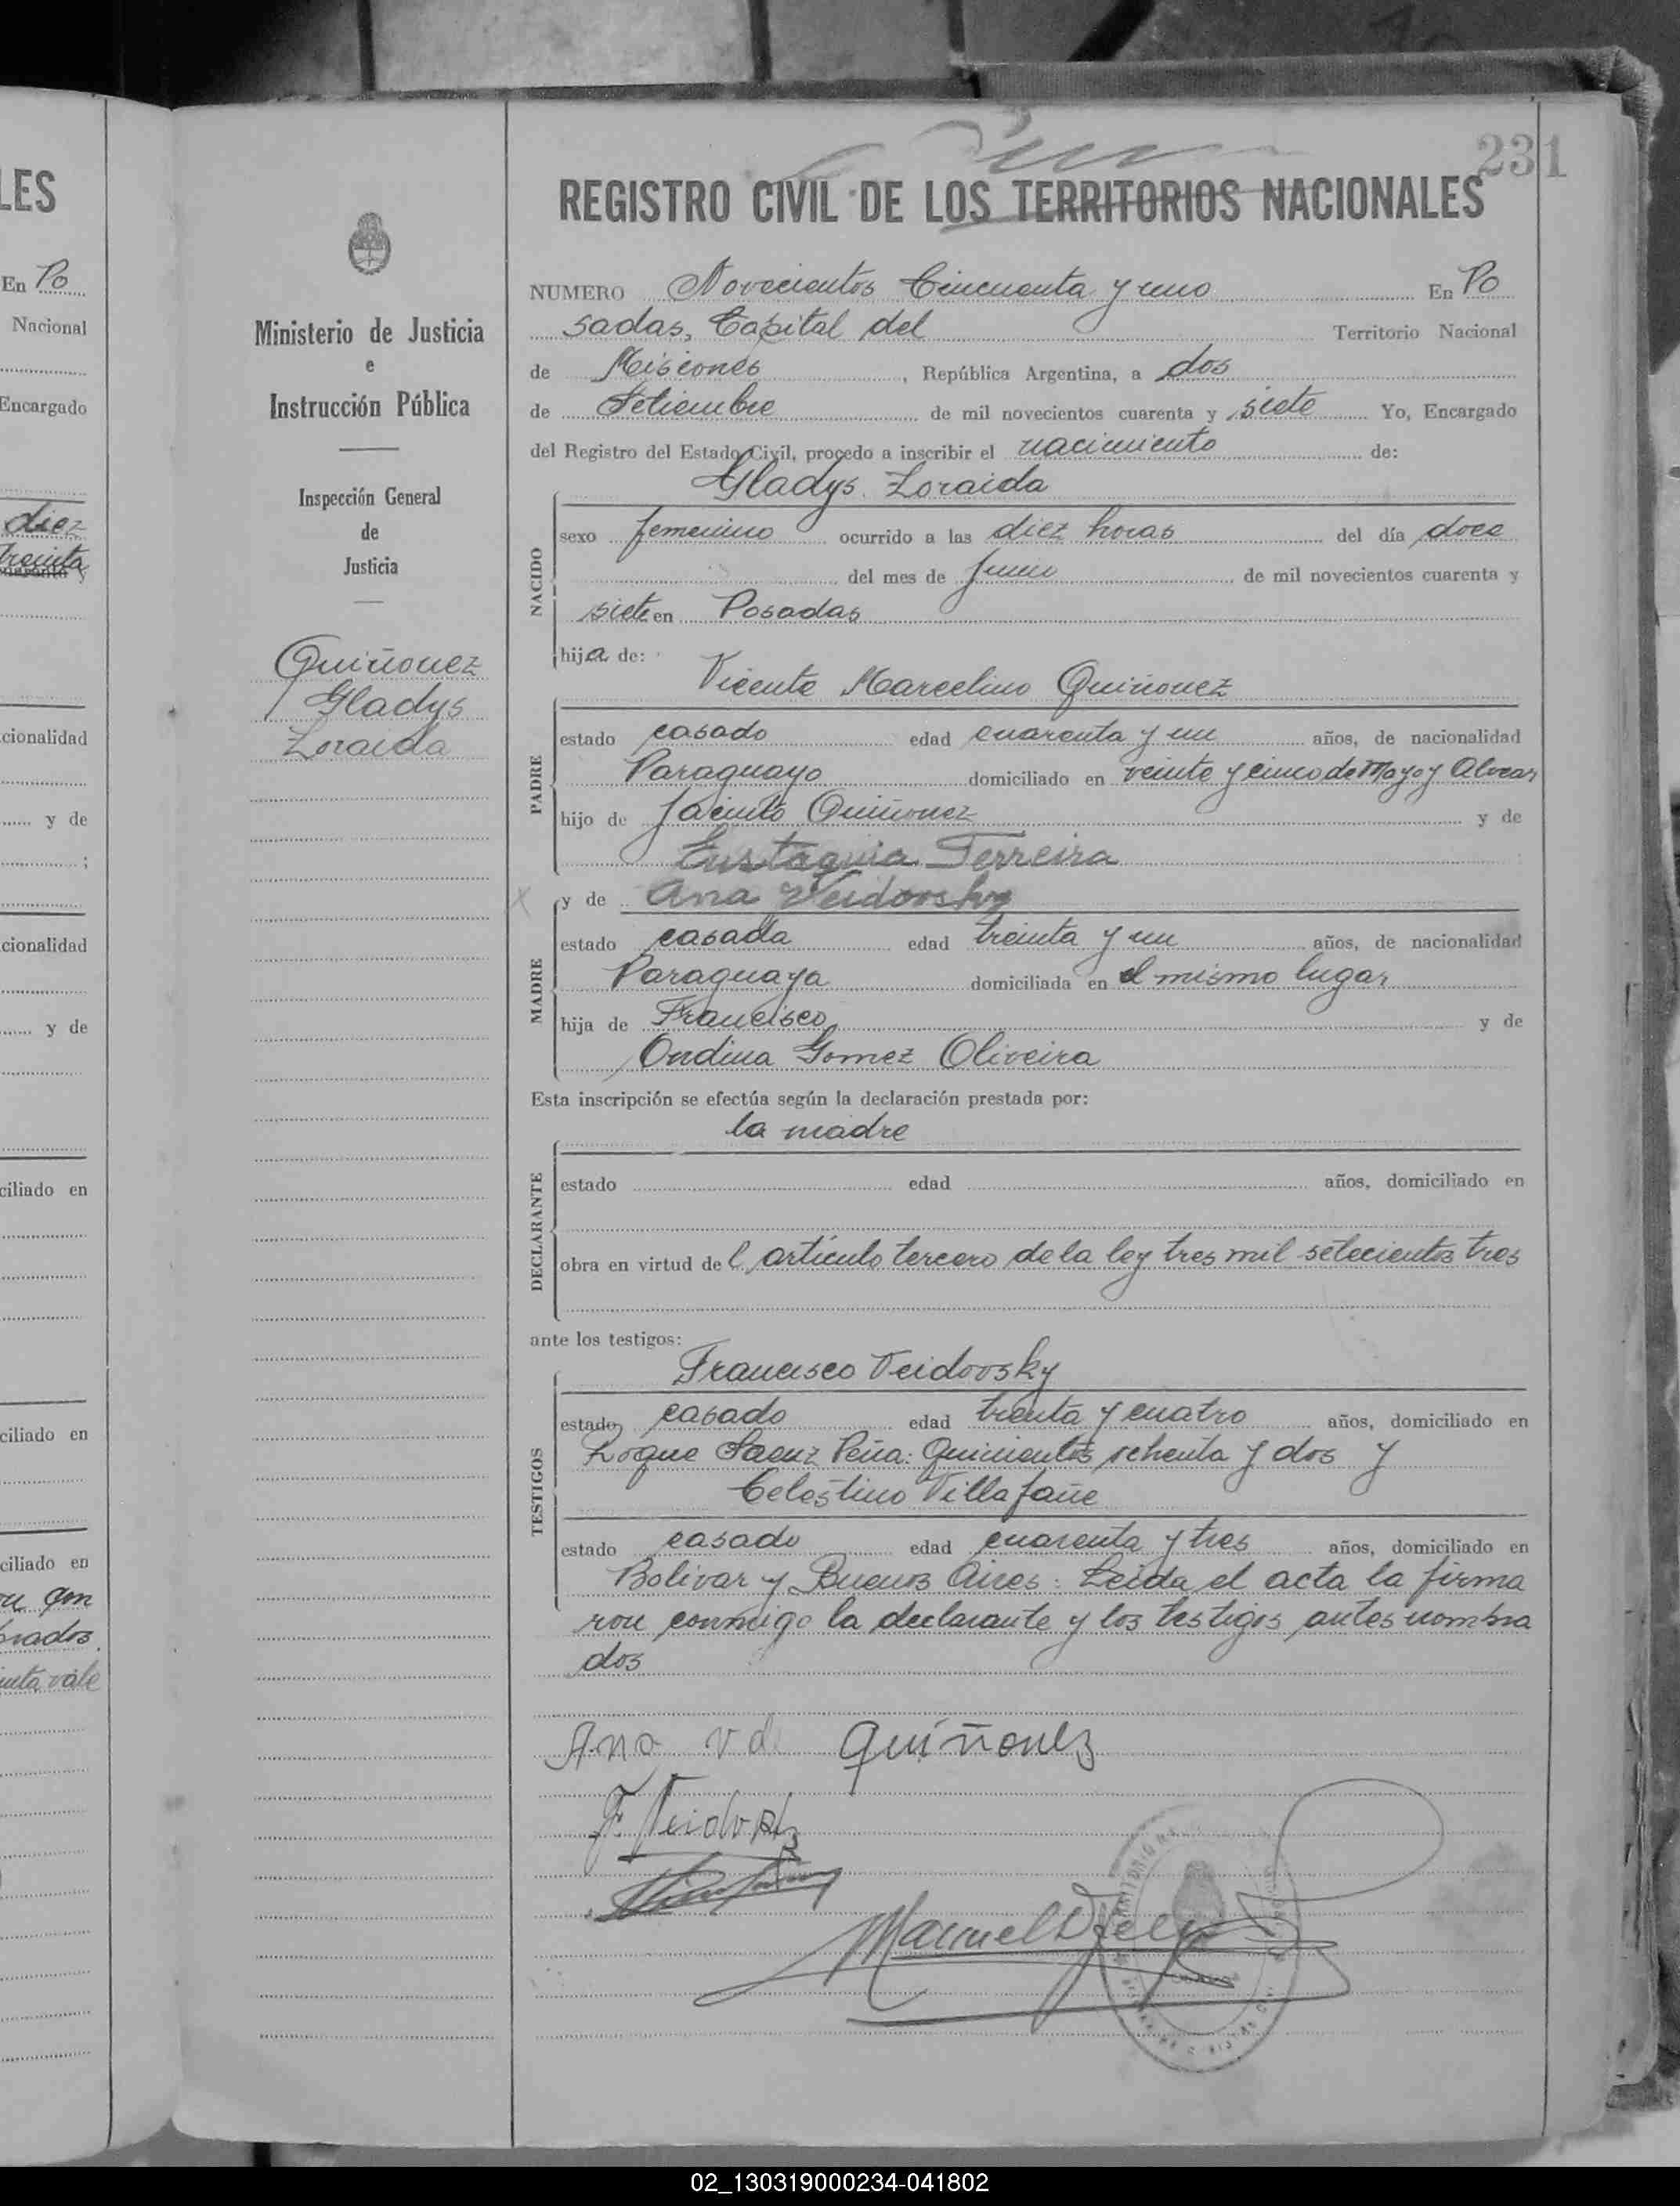 231
REGISTRO CIVIL DE LOS TERRITORIOS NACIONALES
NUMERO Novecientos Cincuenta y uno En Po
sadas, Capital del Territorio Nacional
de Misiones, República Argentina, a dos
de Setiembre de mil novecientos cuarenta y siete Yo, Encargado
del Registro del Estado Civil, procedo a inscribir el nacimiento de:
Gladys Zoraida
NACIDO
sexo femenino ocurrido a las diez horas del día doce
del mes de Junio de mil novecientos cuarenta y
siete en Posadas
hija de:
Vicente Marcelino Quiñonez
PADRE
estado casado edad cuarenta y un años, de nacionalidad
Paraguayo domiciliado en veinte y cinco de Mayo y Alvear
hijo de Jacinto Quiñonez y de
Eustaquia Ferreira
y de Ana Veidovsky
MADRE
estado casada edad treinta y un años, de nacionalidad
Paraguaya domiciliada en el mismo lugar
hija de Francisco y de
Ondina Gomez Oliveira
Esta inscripción se efectúa según la declaración prestada por:
la madre
DECLARANTE
estado edad años, domiciliado en
obra en virtud del artículo tercero de la ley tres mil setecientos tres
ante los testigos:
Francisco Veidovsky
TESTIGOS
estado casado edad treinta y cuatro años, domiciliado en
Roque Saenz Peña: Quinientos ochenta y dos y
Celestino Villafañe
estado casado edad cuarenta y tres años, domiciliado en
Bolivar y Buenos Aires: Leida el acta la firma
ron conmigo la declarante y los testigos antes nombra
dos
Ana v d Quiñonez
F. Veidovsky
Ministerio de Justicia
e
Instrucción Pública
Inspección General
de
Justicia
Quiñonez
Gladys
Zoraida
LES
En Po
Nacional
Encargado
diez
treinta
cionalidad
y de
;
cionalidad
y de
ciliado en
ciliado en
ciliado en
brados
vale
02_130319000234-041802